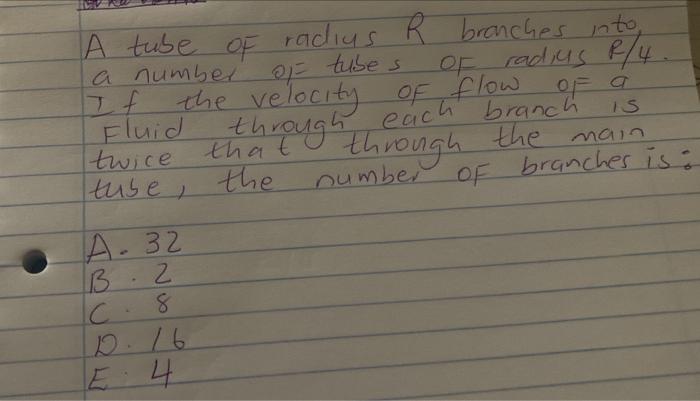 A tube OF radius R branches into
a number OF tubes OF radius R/4.
If the velocity OF flow OF a
Fluid through each branch is
twice that through the main
tube, the number OF branches is:
A. 32
B. 2
C. 8
D. 16
E. 4